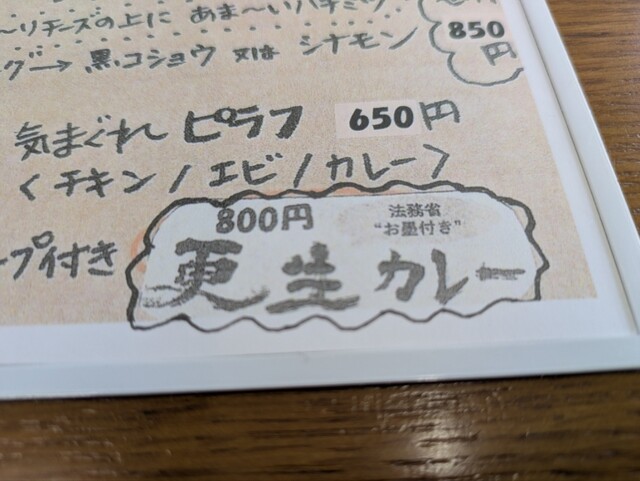 〜リチーズの上に あま〜いハチミツ
グ→ 黒コショウ 又は シナモン
850
円
気まぐれ ピラフ 650円
〈チキン/エビ/カレー〉
プ付き
800円 法務省
“お墨付き”
更生カレー